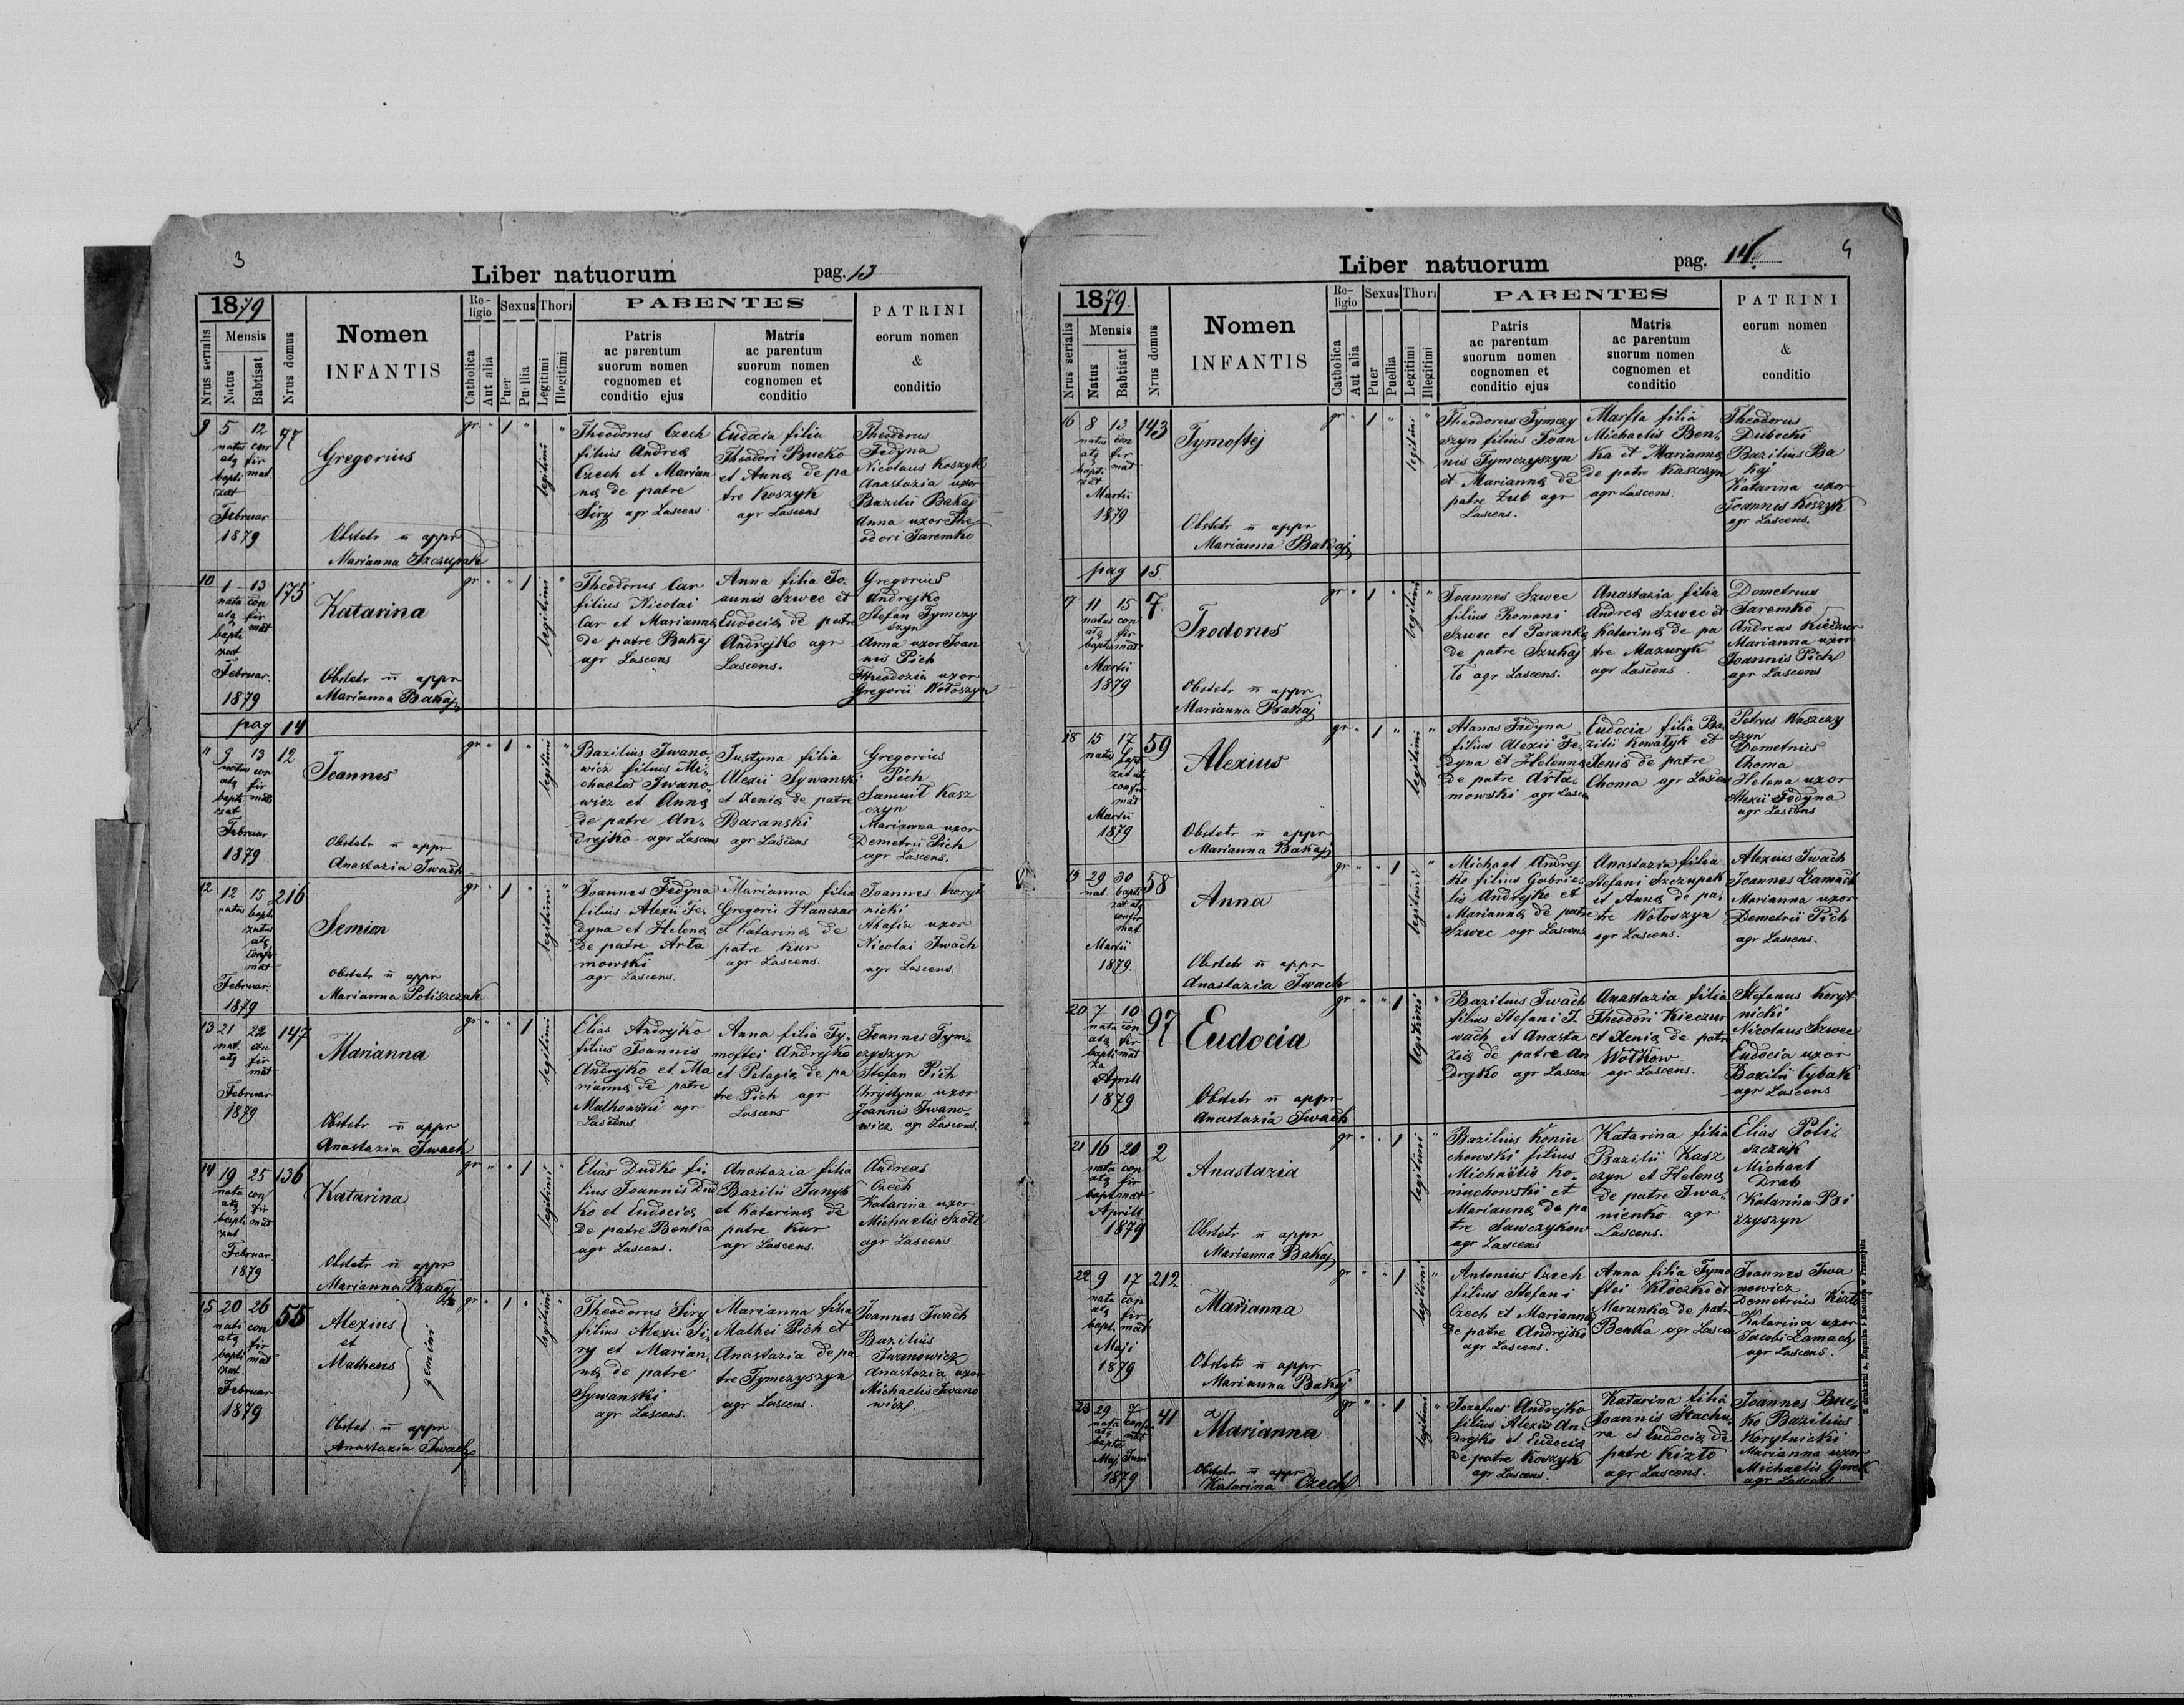 3
Liber natuorum pag. 13
1879
Nrus serialis
Mensis
Natus
Babtisat
Nrus domus
Nomen
INFANTIS
Re-
ligio
Catholica
Aut alia
Sexus
Puer
Puella
Thori
Legitimi
Illegitimi
PARENTES
Patris
ac parentum
suorum nomen
cognomen et
conditio ejus
Matris
ac parentum
suorum nomen
cognomen et
conditio
PATRINI
eorum nomen
&
conditio
9 5 12 77
natus con
atq fir
bapti mat
zat
Februar
1879
Gregorius
Obstetr n appr
Marianna Szczupak
gr " 1 " legitimi "
Theodorus Czech
filius Andreä
Czech et Marian
nä de patre
Siry agr Lascens
Eudocia filia
Theodori Bucko
et Annä de pa
tre Koszyk
agr Lascens
Theodorus
Fedyna
Nicolaus Koszyk
Anastazia uxor
Bazilii Bakaj
Anna uxor The
odori Jaremko
10 1 13 175
nata con
atq fir
bapti mat
zat
Februar.
1879
Katarina
Obstetr n appr
Marianna Bakaj
gr " " 1 legitimi "
Theodorus Car
filius Nicolai
Car et Mariannä
de patre Bakaj
agr Lascens
Anna filia Jo-
annis Szwec et
Eudociä de patre
Andrejko agr
Lascens.
Gregorius
Andrejko
Stefan Tymczy
szyn
Anna uxor Joan
nis Pich
Theodozia uxor
Gregorii Wołoszyn
pag 14
11 9 13 12
natus con
atq fir
bapti mat
zat
Februar
1879
Joannes
Obstetr n appr
Anastazia Iwach
gr " 1 " legitimi "
Bazilius Iwano-
wicz filius Mi-
chaelis Iwano-
wicz et Annä
de patre An-
drejko agr Lascens
Justyna filia
Alexii Sywanski
et Xeniä de patre
Baranski
agr Lascens
Gregorius
Pich
Samuil Kasz
czyn
Marianna uxor
Demetrii Pich
agr Lascens.
12 12 15 216
natus bapti
zatus
atq
confir
mat
Februar.
1879
Semion
Obstetr n appr
Marianna Poliszczak
gr " 1 " legitimi "
Joannes Fedyna
filius Alexii Fe-
dyna et Helenä
de patre Arta
mowski
agr Lascens.
Marianna filia
Gregorii Hanczar
et Katarinä de
patre Kur
agr Lascens.
Joannes Koryt
nicki
Ahafia uxor
Nicolai Iwach
agr Lascens.
13 21 22 147
nat con
atq fir
mat
Februar
1879
Marianna
Obstetr n appr
Anastazia Iwach
gr " " 1 legitimi
Elias Andrejko
filius Joannis
Andrejko et Ma
riannä de patre
Malhowski agr
Lascens
Anna filia Ty-
moftei Andrejko
et Pelagiä de pa
tre Pich agr
Lascens
Joannes Tym-
czyszyn
Stefan Pich
Chrystyna uxor
Joannis Iwano-
wicz agr Lascens.
14 19 25 136
nata con
atq fir
bapti mat
zat
Februar
1879
Katarina
Obstetr n appr
Marianna Bakaj
gr " " 1 legitimi "
Elias Dudko fi-
lius Joannis Dud
ko et Eudociä
de patre Benka
agr Lascens.
Anastazia filia
Bazilii Janyk
et Katarinä de
patre Kur
agr Lascens.
Andreas
Czech
Katarina uxor
Michaelis
agr Lascens
15 20 26 55
nati con
atq fir
bapti mat
zat
Februar
1879
Alexius
et
Matheus
gemini
Obstet n appr
Anastazia Iwach
gr " 1 " legitimi "
Theodorus Siry
filius Alexii Si-
ry et Marian-
nä de patre
Sywanski
agr Lascens.
Marianna filia
Mathei Pich et
Anastazia de pa
tre Tymczyszyn
agr Lascens.
Joannes Iwach
Bazilius
Iwanowicz
Anastazia uxor
Michaelis Iwano
wicz.
4
Liber natuorum pag. 14
1879.
Nrus serialis
Mensis
Natus
Babtisat
Nrus domus
Nomen
INFANTIS
Re-
ligio
Catholica
Aut alia
Sexus
Puer
Puella
Thori
Legitimi
Illegitimi
PARENTES
Patris
ac parentum
suorum nomen
cognomen et
conditio ejus
Matris
ac parentum
suorum nomen
cognomen et
conditio
PATRINI
eorum nomen
&
conditio
16 8 13 143
natus con
atq fir
bapti mat
zat
Martii
1879
Tymoftej
Obstetr n appr
Marianna Bakaj
gr " 1 " legitimi "
Theodorus Tymczy
szyn filius Joan
nis Tymczyszyn
et Mariannä de
patre Zub agr
Lascens.
Marfta filia
Michaelis Ben-
ka et Mariannä
de patre Kaszczyn
agr Lascens.
Theodorus
Dubecki
Bazilius Ba
kaj
Katarina uxor
Joannis Koszyk
agr Lascens.
pag 15.
17 11 15 7
natus con
atq fir
bapti mat
Martii
1879
Teodorus
Obstetr n appr
Marianna Bakaj
gr " 1 " legitimi "
Joannes Szwec
filius Romani
Szwec et Parankä
de patre Szuhaj
to agr Lascens.
Anastazia filia
Andreä Szwec et
Katarinä de pa
tre Mazuryk
agr Lascens.
Demetrius
Jaremko
Andreas Kieczur
Marianna uxor
Joannis Pich
agr Lascens
18 15 17 59
natus bapti
zat atq
confir
mat
Martii
1879
Alexius
Obstetr n appr
Marianna Bakaj
gr " 1 " legitimi "
Atanas Fedyna
filius Alexii Fe-
dyna et Helennä
de patre Arta-
mowski agr Lasce
Eudocia filia Ba
zilii Kowałyk et
Xeniä de patre
Choma agr Lascens
Petrus Kaszczy
szyn
Demetrius
Choma
Helena uxor
Alexii Fedyna
agr Lascens
19 29 30 58
nat bapti
zat atq
confir
mat
Martii
1879.
Anna
Obstetr n appr
Anastazia Iwach
gr " " 1 legitimi "
Michael Andrej
ko filius Gabrie-
lis Andrejko et
Mariannä de patre
Szwec agr Lascens
Anastazia filia
Stefani Szczupak
et Annä de pa-
tre Wołoszyn
agr Lascens.
Alexius Iwach
Joannes Lamach
Marianna uxor
Demetrii Pich
agr Lascens.
20 7 10 97
nata con
atq fir
bapti mat
za
Aprili
1879
Eudocia
Obstetr n appr
Anastazia Iwach
gr " " 1 legitimi "
Bazilius Iwach
filius Stefani I-
wach et Anasta
ziä de patre An
drejko agr Lascen
Anastazia filia
Theodori Kieczur
et Xeniä de patre
Wołkow
agr Lascens.
Stefanus Koryt
nicki
Nicolaus Szwec
Eudocia uxor
Bazilii Cybak
agr Lascens
21 16 20 2
nata con
atq fir
bapti mat
Aprili
1879
Anastazia
Obstetr n appr
Marianna Bakaj
gr " " 1 legitimi "
Bazilius Koniu
chowski filius
Michaëlis Ko-
niuchowski et
Mariannä de pa
tre Sawczykow
agr Lascens
Katarina filia
Bazilii Kasz
czyn et Helenä
de patre Iwa-
nienko agr
Lascens.
Elias Poli-
szczak
Michael
Drab
Katarina Bi
zyszyn
22 9 17 212
nata con
atq fir
bapti mat
Maji
1879
Marianna
Obstetr n appr
Marianna Bakaj
gr " " 1 legitimi "
Antonius Czech
filius Stefani
Czech et Mariannä
de patre Andrejko
agr Lascens.
Anna filia Tymo
ftei Kłoczki et
Marunkä de patre
Benka agr Lascen
Joannes Iwa
nowicz
Demetrius Kizto
Katarina uxor
Jacobi Lamach
agr Lascens.
23 29 7 41
nata confir
atq mat
bapti
Maj Juni
1879
Marianna
Obstetr n appr
Katarina Czech
gr " " 1 legitimi "
Jozefus Andrejko
filius Alexii An-
drejko et Eudociä
de patre Koszyk
agr Lascens.
Katarina filia
Joannis Stachu-
ra et Eudociä de
patre Kizto
agr Lascens.
Joannes Buc-
ko Bazilius
Korytnicki
Marianna uxor
Michaelis Gorek
agr Lascens
Z drukarni A. Żupnika i Knollera w Przemyślu